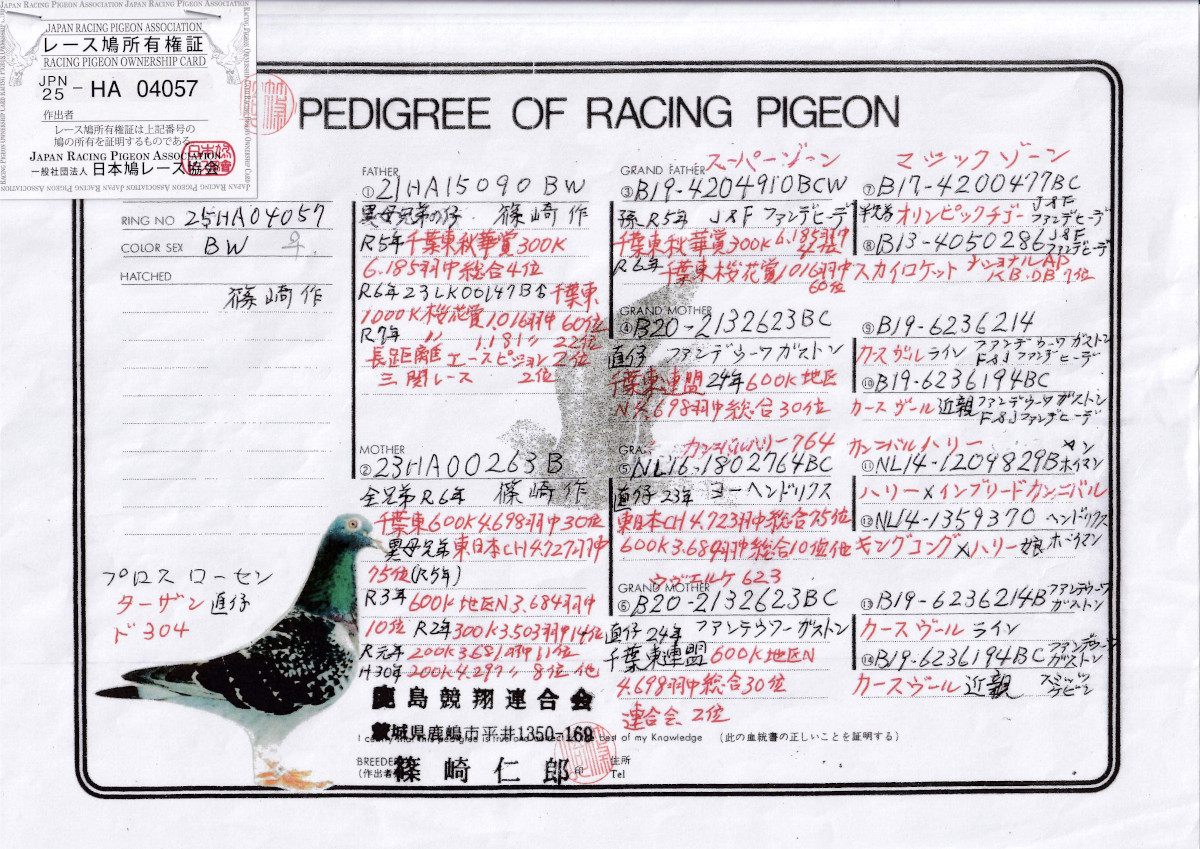 JAPAN RACING PIGEON ASSOCIATION
レース鳩所有権証
RACING PIGEON OWNERSHIP CARD
JPN 25 - HA 04057
作出者
レース鳩所有権証は上記番号の
鳩の所有を証明するものである
JAPAN RACING PIGEON ASSOCIATION
一般社団法人 日本鳩レース協会
PEDIGREE OF RACING PIGEON
RING NO 25HA04057
COLOR SEX BW ♀
HATCHED
篠崎作
プロス ローセン
ターザン 直仔
ド304
FATHER
① 21HA15090 BW
異母兄弟の仔 篠崎作
R5年千葉東秋華賞300K
6.185羽中総合4位
R6年23LK00147B♂千葉東
1000K桜花賞1,016羽中60位
R7年 〃 1.181〃 22位
長距離エースピジョン2位
三関レース 2位
MOTHER
② 23HA00263B
全兄弟R6年 篠崎作
千葉東600K4.698羽中30位
異母兄弟東日本CH4.727羽中
75位(R5年)
R3年600K地区N3.684羽中
10位 R2年300K3.503羽914位
R元年200K3.681羽中11位
H30年200K4.297〃8位他
GRAND FATHER スーパーゾーン
③ B19-4204910BCW
孫R5年 J&F ファンデヒーデ
千葉東秋華賞300K6.185羽中
4位
R6年
千葉東桜花賞1016羽中
60位
GRAND MOTHER
④ B20-2132623BC
直仔 ファンデウーワ ガストン
千葉東連盟24年600K地区
N4.698羽中総合30位
カンニバルハリー764
⑤ NL16-1802764BC
直仔23年 ヨーヘンドリクス
東日本CH4.723羽中総合75位
600K3.689羽中総合10位他
ウヴエルケ623
GRAND MOTHER
⑥ B20-2132623BC
直仔24年 ファンテウワー ガストン
千葉東連盟600K地区N
4.698羽中総合30位
連合会2位
マジックゾーン
⑦ B17-4200477BC
オリンピックチゴー J&F ファンデヒーデ
⑧ B13-4050286 J&F ファンデヒーデ
スカイロケット ナショナルAP
KB.DB7位
⑨ B19-6236214
カースヴルライン ファンデウーワガストン
F&Jファンデヒーデ
⑩ B19-6236194BC
カースヴール近親 ファンデウーワガストン
F&Jファンデヒーデ
カンニバルハリー
⑪ NL14-1209829B ヤンホイマン
ハリー×インブリードカンニバル
⑫ NL14-1359370 ヘンドリクス
キングコング×ハリー娘 ホイマン
⑬ B19-6236214B ファンデウーワ ガストン
カースヴール ライン
⑭ B19-6236194BC ファンデウーワ ガストン
カースヴール 近親
鹿島競翔連合会
茨城県鹿嶋市平井1350-169
of my Knowledge (此の血統書の正しいことを証明する)
BREEDER
(作出者) 篠崎仁郎 印
住所
Tel